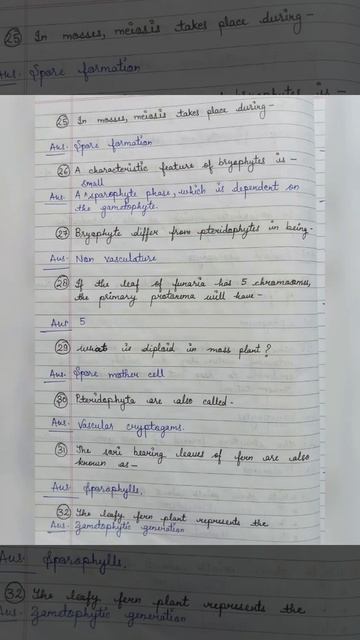 (25) In mosses, meiosis takes place during -
Ans. Spore formation
(25) In mosses, meiosis takes place during -
Ans. Spore formation
(26) A characteristic feature of bryophytes is -
small
Ans. A ^ sporophyte phase, which is dependent on
the gametophyte.
(27) Bryophyte differ from pteridophytes in being -
Ans. Non vasculature
(28) If the leaf of funaria has 5 chromosomes,
the primary protonema will have -
Ans 5
(29) What is diploid in moss plant?
Ans. Spore mother cell
(30) Pteridophyta are also called -
Ans. Vascular cryptogams.
(31) The sori bearing leaves of fern are also
known as -
Ans Sporophylls.
(32) The leafy fern plant represents the
Ans. Gametophytic generation
Ans. Sporophylls.
(32) The leafy fern plant represents the
Ans. Gametophytic generation